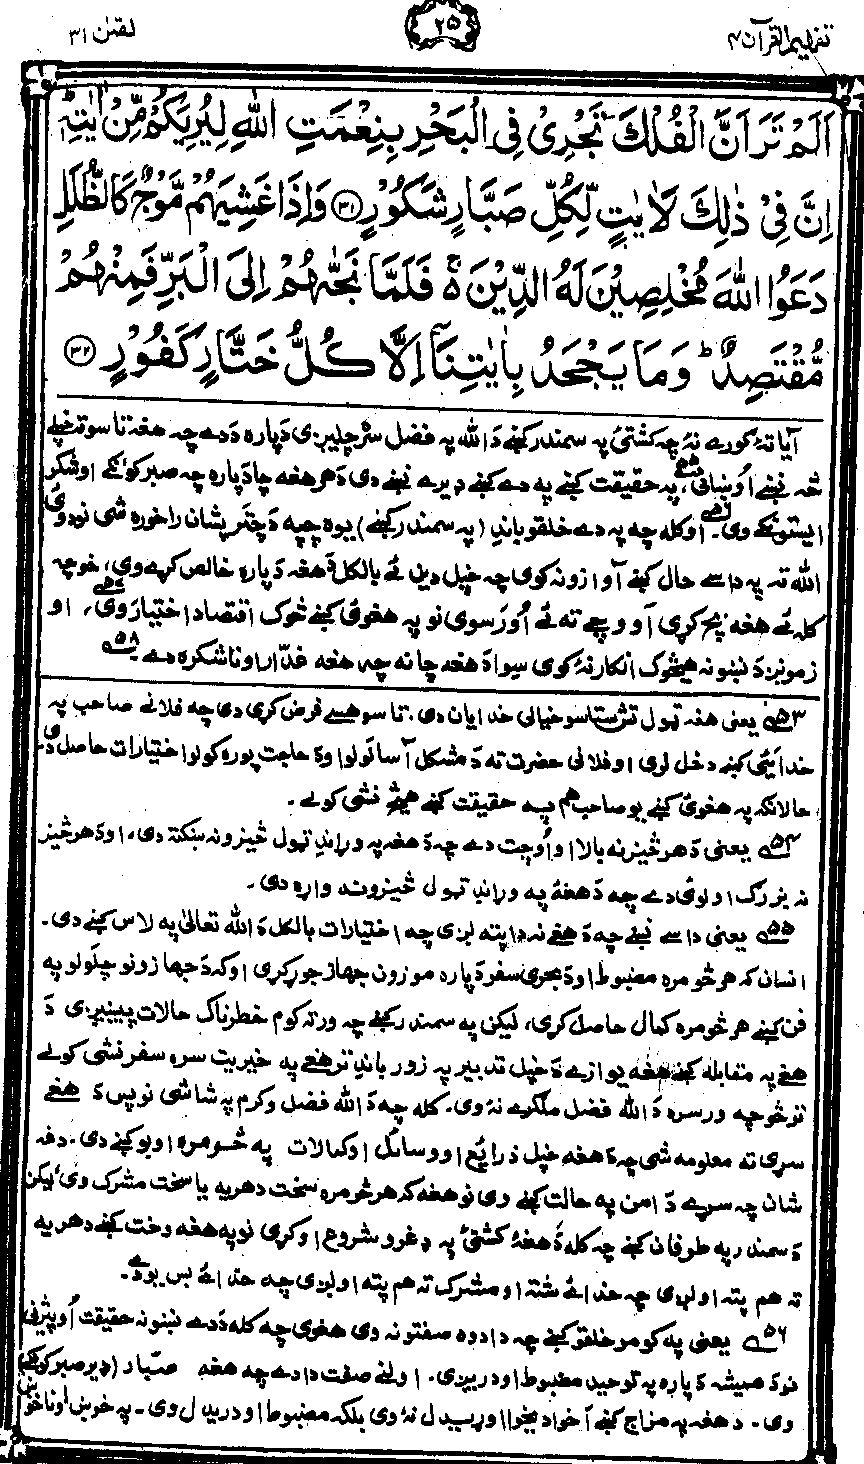 تفهیم القرآن ۴
۲۵
لقمٰن ۳۱
اَلَمْ تَرَ اَنَّ الْفُلْكَ تَجْرِیْ فِی الْبَحْرِ بِنِعْمَتِ اللّٰهِ لِیُرِیَكُمْ مِّنْ اٰیٰتِهٖ ؕ
اِنَّ فِیْ ذٰلِكَ لَاٰیٰتٍ لِّكُلِّ صَبَّارٍ شَكُوْرٍ ﴿۳۱﴾ وَاِذَا غَشِیَهُمْ مَّوْجٌ كَالظُّلَلِ
دَعَوُا اللّٰهَ مُخْلِصِیْنَ لَهُ الدِّیْنَ ۬ۚ فَلَمَّا نَجّٰىهُمْ اِلَی الْبَرِّ فَمِنْهُمْ
مُّقْتَصِدٌ ؕ وَمَا یَجْحَدُ بِاٰیٰتِنَاۤ اِلَّا كُلُّ خَتَّارٍ كَفُوْرٍ ﴿۳۲﴾
آیا تهٔ ګورے نهٔ چه کشتیٔ په سمندر کښے دَ الله په فضل سره چلیږی دَپاره دَدے چه هغه تا سو ته خپلے
څه نښے اُوښائی، په حقیقت کښے په دے کښے ډیرے نښے دی دَ هر هغه چا دَپاره چه صبر کوُنکے اوشکر
ایستونکے وی۔ اوکله چه په دے خلقو باندِ (په سمندر کښے) یوه چپه دَ چتر په شان راخوره شی نو دوی
الله ته په داسے حال کښے آوازونه کوی چه خپل دین ئے بالکل دَ هغه دَ پاره خالص کړے وی، خو چه
کله ئے هغه بچ کړی آو وچے ته ئے اُورسوی نو په هغوی کښے څوک اقتصاد اختیاروی، او
زمونږ دَ نښو نه هیڅوک انکار نهٔ کوی سوا دَ هغه چا نه چه هغه غدّار او ناشکره دے۔ ۵۸
۵۳ یعنی هغه ټول تش ستاسو خیالی خدایان دی. تاسو هسے فرض کړی دی چه فلانے صاحب په
خدائیٔ کښے دخل لری اوفلانی حضرت ته دَ مشکل آسانولو اودَ حاجت پوره کولو اختیارات حاصل دی
حالانکه په هغوی کښے یو صاحب هم په حقیقت کښے هیڅ نشی کولے.
۵۴ یعنی دَ هر څیز نه بالا او اُوچت دے چه دَ هغه په وړاندِ ټول څیزونه ښکته دی، او دَ هر څیز
نه بزرګ او لوئ دے چه دَ هغهٔ په وړاندِ ټول څیزونه واړه دی.
۵۵ یعنی داسے نښے چه دَ هغے نه دا پته لږی چه اختیارات بالکل دَ الله تعالیٰ په لاس کښے دی.
انسان که هر څومره مضبوط اودَ بحری سفر دَپاره موزون جهاز جوړکړی اوکه دَ جهازونو چلولو په
فن کښے هر څومره کمال حاصل کړی، لیکن په سمندر کښے چه ورته کوم خطرناک حالات پیښیږی دَ
هغے په مقابله کښے هغه یوازے دَ خپل تدبیر په زور باندِ تر هغے په خیریت سره سفر نشی کولے
ترڅو چه ورسره دَ الله فضل ملګرے نهٔ وی. کله چه دَ الله فضل وکرم په شا شی نو پس دَ هغے
سړی ته معلومه شی چه دَ هغه خپل ذرایع او وسائل اوکمالات په څومره اوبو کښے دی. دغه
شان چه سړے دَ امن په حالت کښے وی نو هغه که هر څومره سخت دهریه یا سخت مشرک وی، لیکن
دَ سمندر په طوفان کښے چه کله دَ هغهٔ کشتیٔ په ډغرو شروع اوکړی نو په هغه وخت کښے دهریه
ته هم پته اولږی چه خدائے شته او مشرک ته هم پته اولږی چه خدائے بس یو دے.
۵۶ یعنی په کومو خلقو کښے چه دا دوه صفتونه وی هغوی چه کله دَدے نښو نه حقیقت اُوپیژنی
نو دَ همیشه دَ پاره په توحید مضبوط اودریږی. اولنے صفت دا دے چه هغه صبّار (ډیر صبر کونکے)
وی. دَ هغه په مزاج کښے آخوا دیخوا اوړیدل نهٔ وی بلکه مضبوط اودریدل وی. په خوښ اوناخوښ